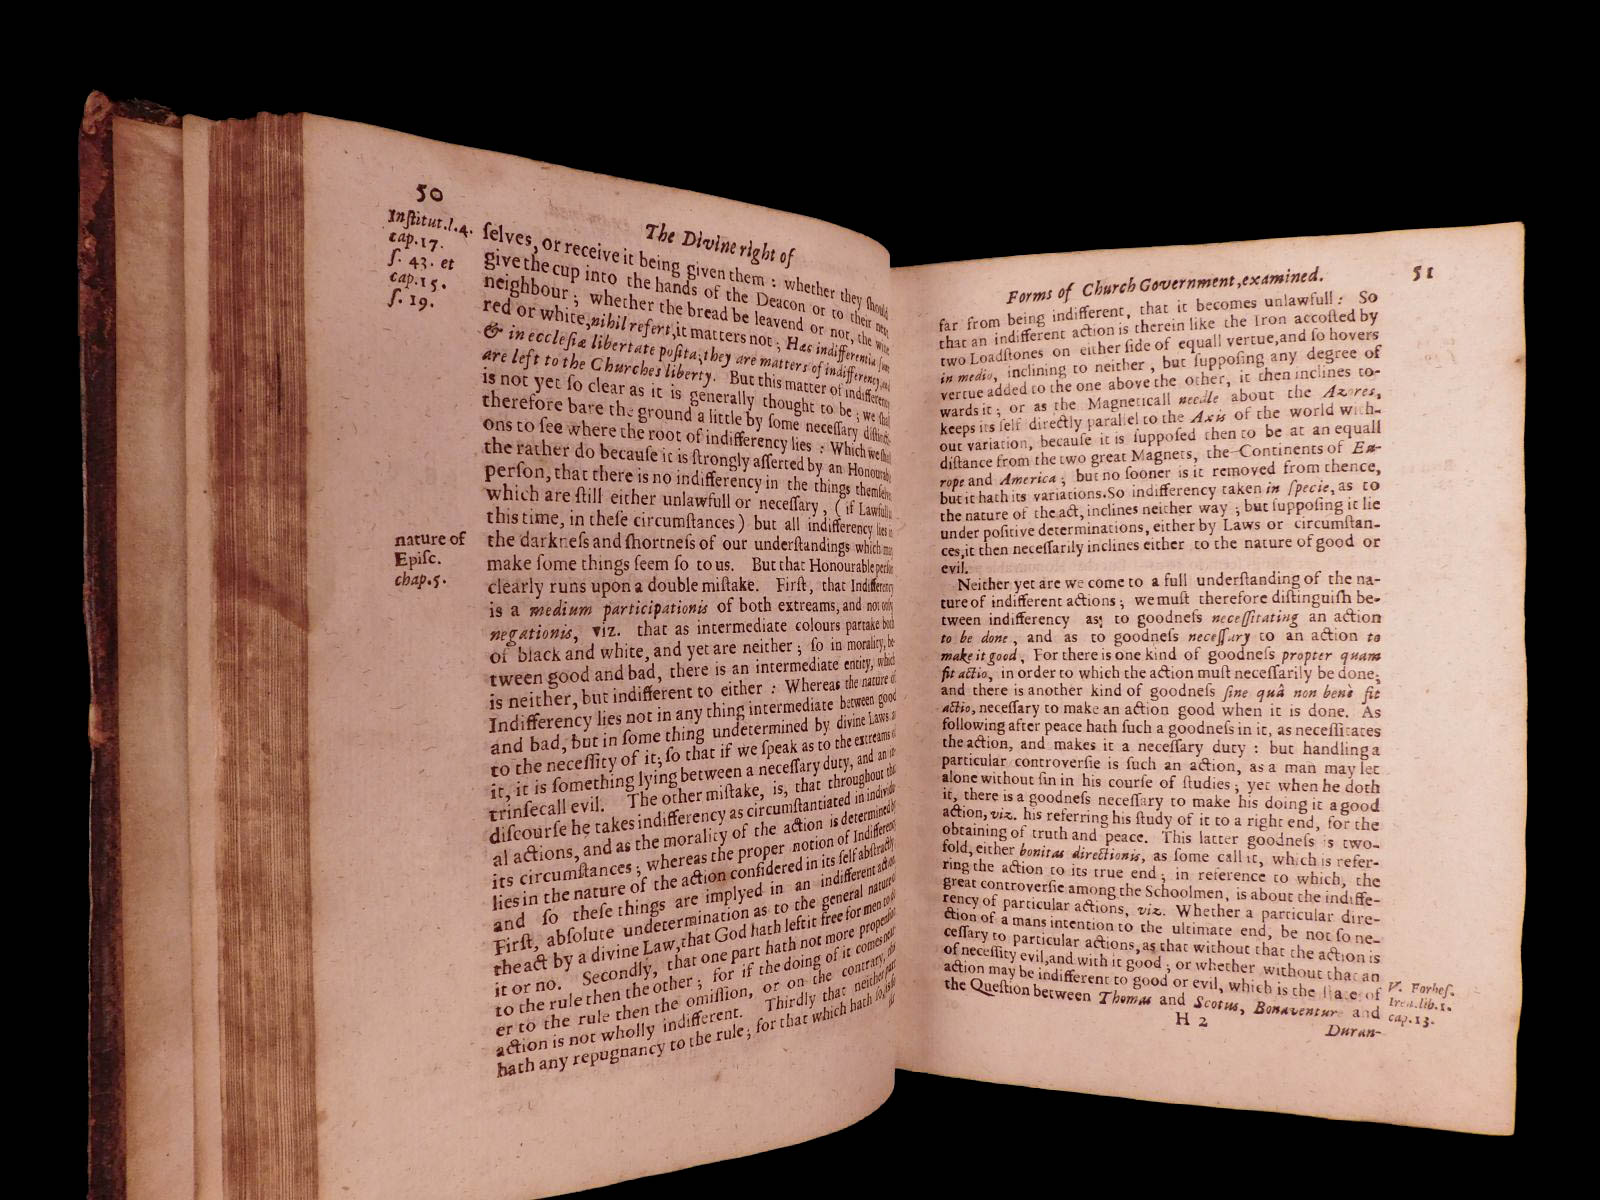 50
The Divine right of
Inſtitut.l.4.
cap.17.
ſ. 43. et
cap.15.
ſ. 19.
ſelves, or receive it being given them : whether they ſhould
give the cup into the hands of the Deacon or to their next
neighbour ; whether the bread be leavend or not, the wine
red or white, nihil refert, it matters not ; Hæc indifferentia ſunt
& in eccleſiæ libertate poſita; they are matters of indifferency, and
are left to the Churches liberty. But this matter of indifferency
is not yet ſo clear as it is generally thought to be ; we ſhall
therefore bare the ground a little by ſome neceſſary diſtincti-
ons to ſee where the root of indifferency lies : Which we ſhall
the rather do becauſe it is ſtrongly aſſerted by an Honourable
perſon, that there is no indifferency in the things themſelves
which are ſtill either unlawfull or neceſſary, ( if Lawfull at
this time, in theſe circumſtances ) but all indifferency lies in
the darkneſs and ſhortneſs of our underſtandings which may
make ſome things ſeem ſo to us. But that Honourable perſon
clearly runs upon a double miſtake. Firſt, that Indifferency
is a medium participationis of both extreams, and not only
negationis, viz. that as intermediate colours partake both
of black and white, and yet are neither ; ſo in morality, be-
tween good and bad, there is an intermediate entity, which
is neither, but indifferent to either : Whereas the nature of
Indifferency lies not in any thing intermediate between good
and bad, but in ſome thing undetermined by divine Laws as
to the neceſſity of it; ſo that if we ſpeak as to the extreams of
it, it is ſomething lying between a neceſſary duty, and an in-
trinſecall evil. The other miſtake, is, that throughout the
diſcourſe he takes indifferency as circumſtantiated in individu-
al actions, and as the morality of the action is determined by
its circumſtances ; whereas the proper notion of Indifferency
lies in the nature of the action conſidered in its ſelf abſtractly,
and ſo theſe things are implyed in an indifferent action.
Firſt, abſolute undetermination as to the general nature of
the act by a divine Law, that God hath left it free for men to do
it or no. Secondly, that one part hath not more propenſion
to the rule then the other ; for if the doing of it comes near-
er to the rule then the omiſſion, or on the contrary, this
action is not wholly indifferent. Thirdly that neither part
hath any repugnancy to the rule ; for that which hath ſo, is ſo
nature of
Epiſc.
chap.5.
Forms of Church Government, examined.
51
far from being indifferent, that it becomes unlawfull : So
that an indifferent action is therein like the Iron accoſted by
two Loadſtones on either ſide of equall vertue, and ſo hovers
in medio, inclining to neither , but ſuppoſing any degree of
vertue added to the one above the other, it then inclines to-
wards it ; or as the Magneticall needle about the Azores,
keeps its ſelf directly parallel to the Axis of the world with-
out variation, becauſe it is ſuppoſed then to be at an equall
diſtance from the two great Magnets, the Continents of Eu-
rope and America ; but no ſooner is it removed from thence,
but it hath its variations. So indifferency taken in ſpecie, as to
the nature of the act, inclines neither way ; but ſuppoſing it lie
under poſitive determinations, either by Laws or circumſtan-
ces, it then neceſſarily inclines either to the nature of good or
evil.
Neither yet are we come to a full underſtanding of the na-
ture of indifferent actions ; we muſt therefore diſtinguiſh be-
tween indifferency as to goodneſs neceſſitating an action
to be done , and as to goodneſs neceſſary to an action to
make it good , For there is one kind of goodneſs propter quam
fit actio, in order to which the action muſt neceſſarily be done;
and there is another kind of goodneſs ſine quâ non benè fit
actio, neceſſary to make an action good when it is done. As
following after peace hath ſuch a goodneſs in it, as neceſſitates
the action, and makes it a neceſſary duty : but handling a
particular controverſie is ſuch an action, as a man may let
alone without ſin in his courſe of ſtudies ; yet when he doth
it, there is a goodneſs neceſſary to make his doing it a good
action, viz. his referring his ſtudy of it to a right end, for the
obtaining of truth and peace. This latter goodneſs is two-
fold, either bonitas directionis, as ſome call it, which is refer-
ring the action to its true end ; in reference to which, the
great controverſie among the Schoolmen, is about the indiffe-
rency of particular actions, viz. Whether a particular dire-
ction of a mans intention to the ultimate end, be not ſo ne-
ceſſary to particular actions, as that without that the action is
of neceſſity evil, and with it good ; or whether without that an
action may be indifferent to good or evil, which is the ſtate of
the Queſtion between Thomas and Scotus, Bonaventure and
V. Forbeſ.
Iren. lib.1.
cap.13.
H 2
Duran-